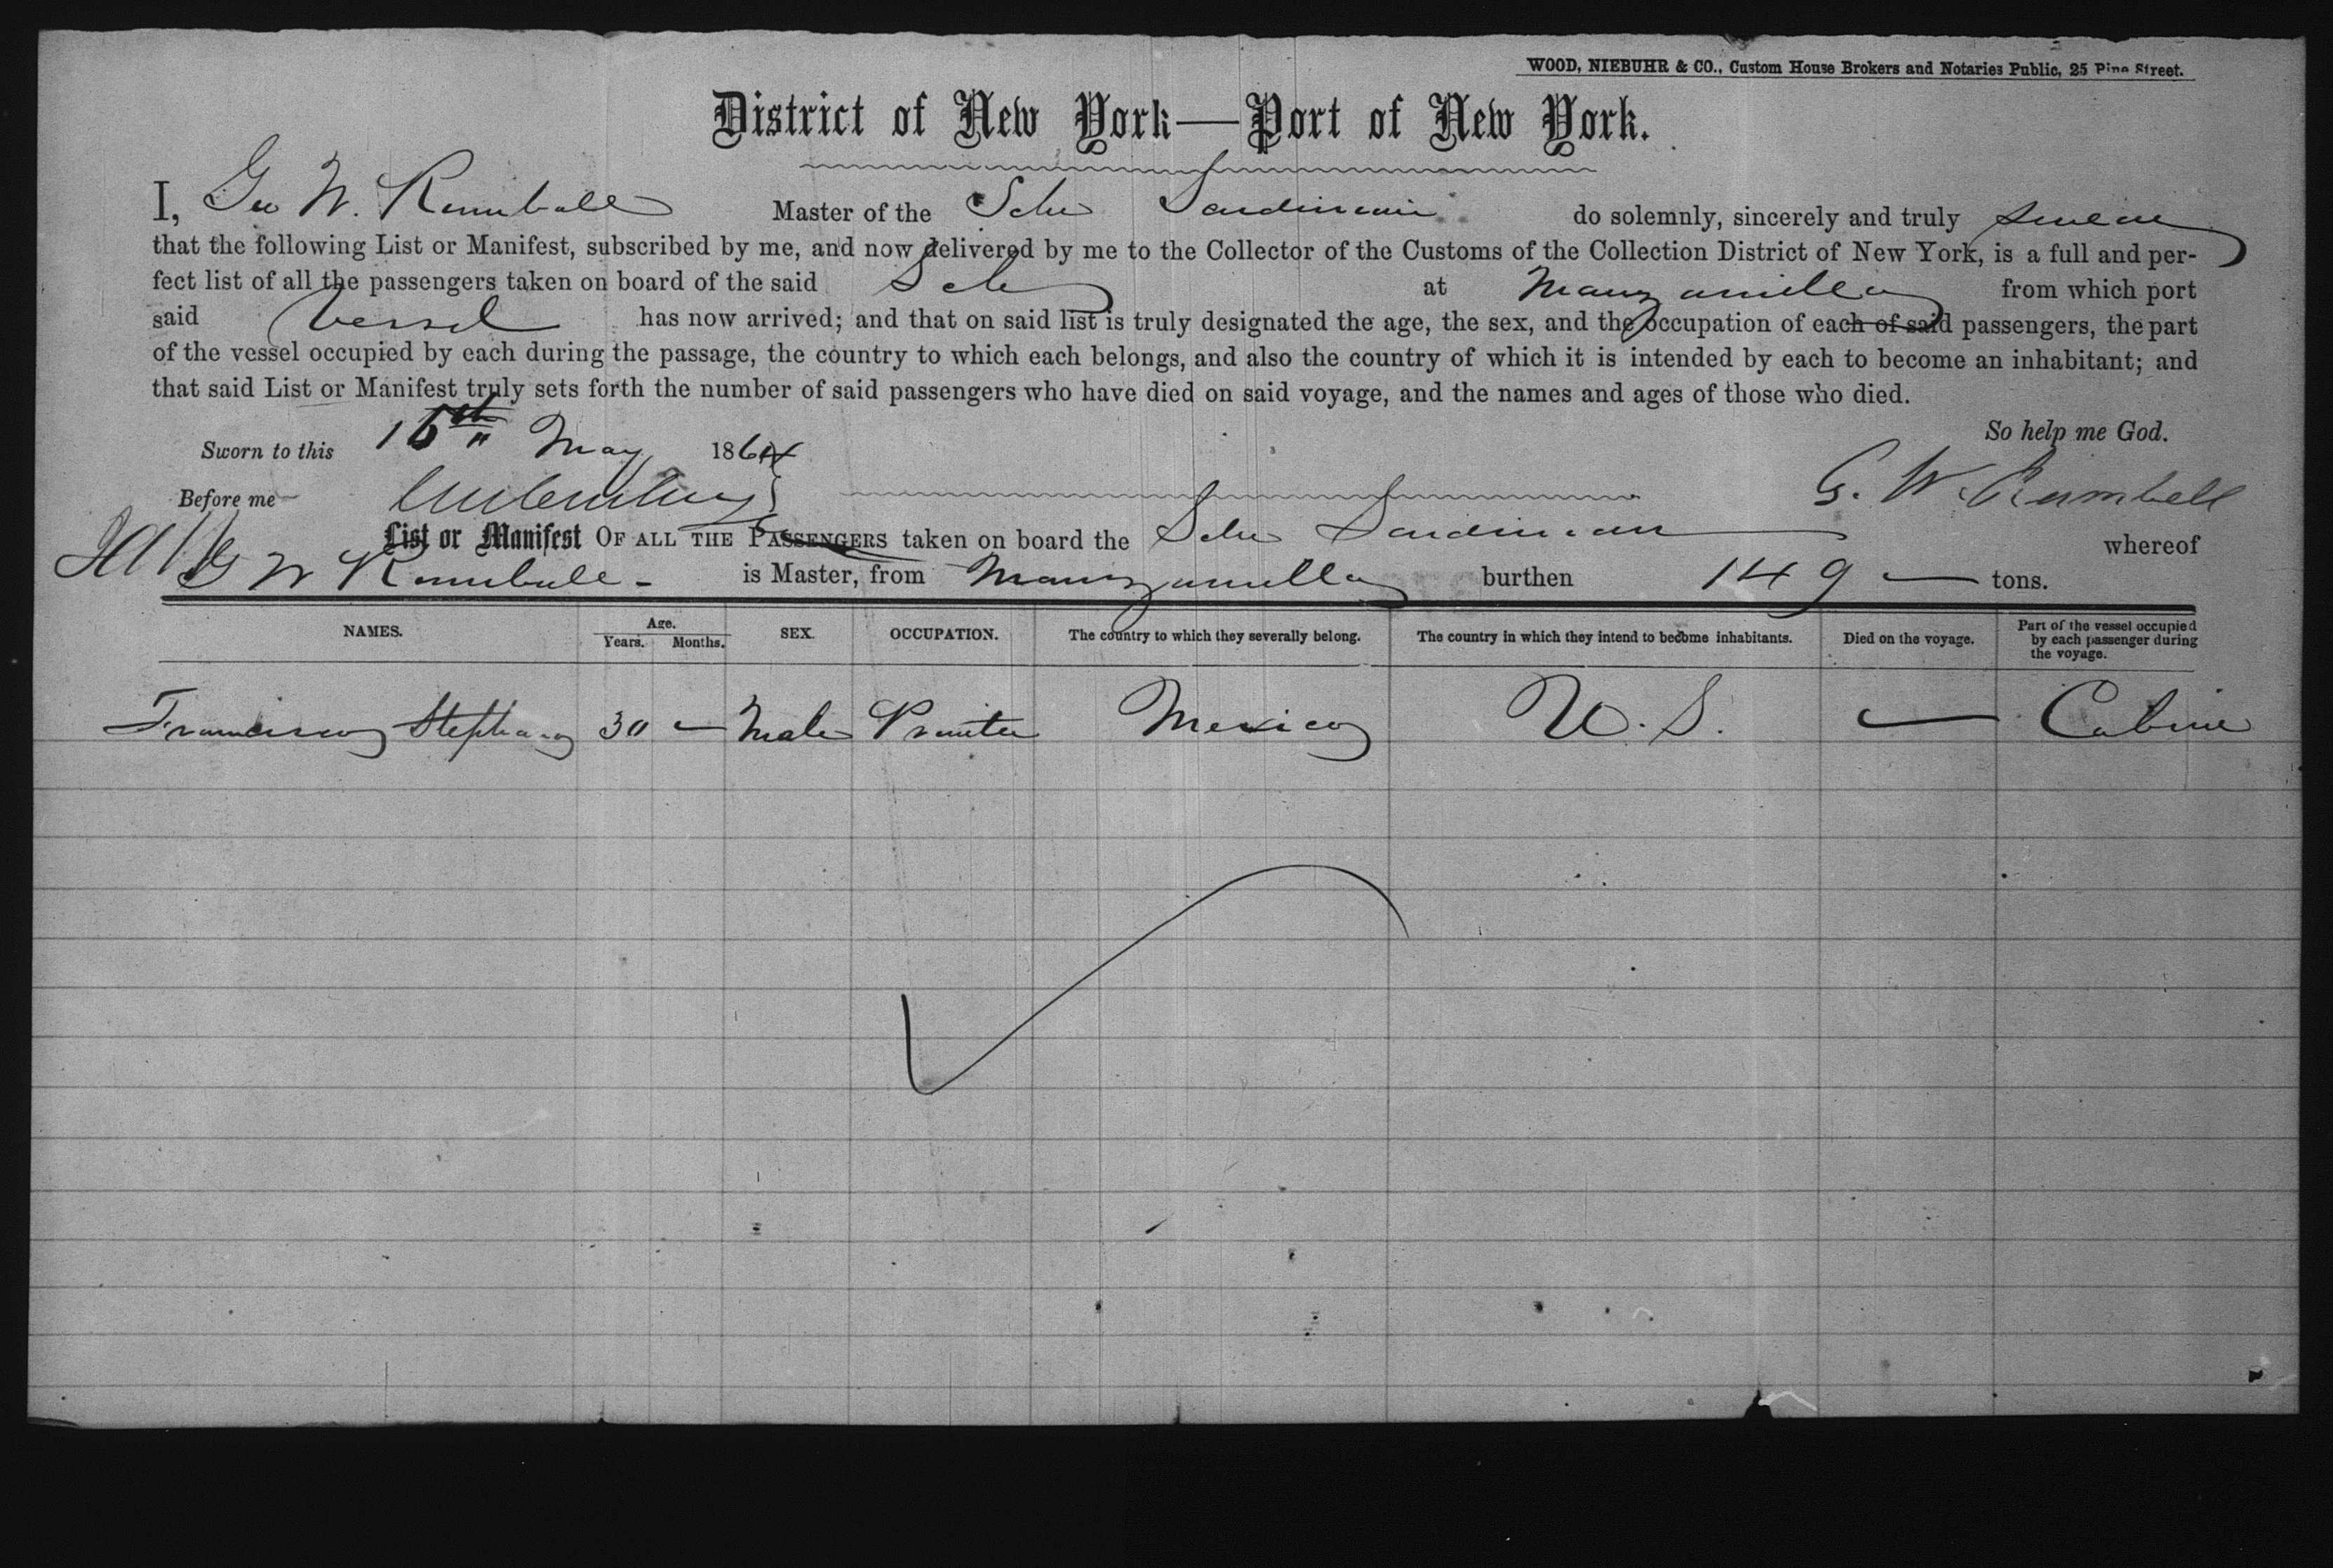 WOOD, NIEBUHR & CO., Custom House Brokers and Notaries Public, 25 Pine Street.
District of New York—Port of New York.
I, Geo W. Rumball Master of the Schr do solemnly, sincerely and truly swear
that the following List or Manifest, subscribed by me, and now delivered by me to the Collector of the Customs of the Collection District of New York, is a full and per-
fect list of all the passengers taken on board of the said Schr at Manzanilla from which port
said Vessel has now arrived; and that on said list is truly designated the age, the sex, and the occupation of each of said passengers, the part
of the vessel occupied by each during the passage, the country to which each belongs, and also the country of which it is intended by each to become an inhabitant; and
that said List or Manifest truly sets forth the number of said passengers who have died on said voyage, and the names and ages of those who died.
So help me God.
Sworn to this 16th May 1864
Before me G. W. Rumball
List or Manifest OF ALL THE PASSENGERS taken on board the Schr whereof
G W Rumball is Master, from Manzanilla burthen 149 tons.
NAMES. Age. Years. Months. SEX. OCCUPATION. The country to which they severally belong. The country in which they intend to become inhabitants. Died on the voyage. Part of the vessel occupied by each passenger during the voyage.
Francisco 30 — Male Mexico U.S. — Cabin